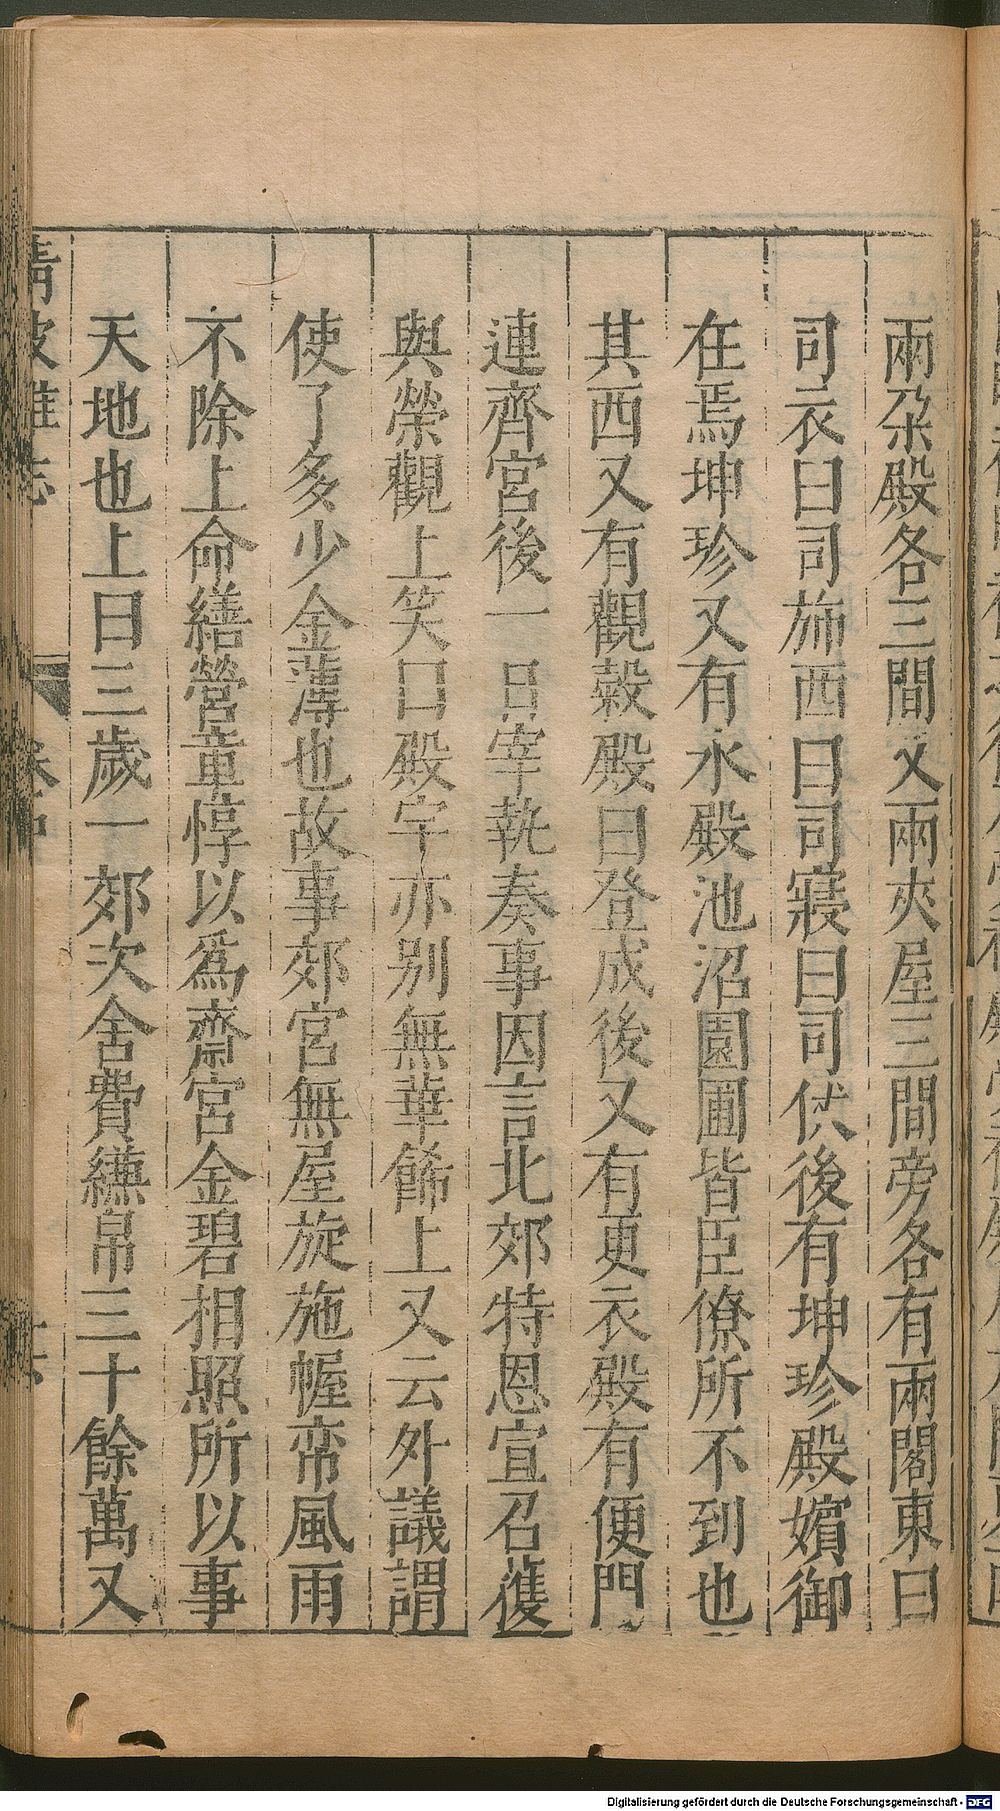 兩朶殿各三間又兩夾屋三間旁各有兩閣東曰
司衣曰司飾西曰司寢曰司伏後有坤珍殿嬪御
在焉坤珍又有水殿池沼園圃皆臣僚所不到也
其西又有觀穀殿曰登成後又有更衣殿有便門
連齊宮後一日宰執奏事因言北郊特恩宣召蒦
與榮觀上笑曰殿宇亦别無華餙上又云外議謂
使了多少金薄也故事郊宮無屋旋施幄帟風雨
不除上命繕營童惇以爲齋宮金碧相照所以事
天地也上曰三歲一郊次舍費縑帛三十餘萬又
清波雜志